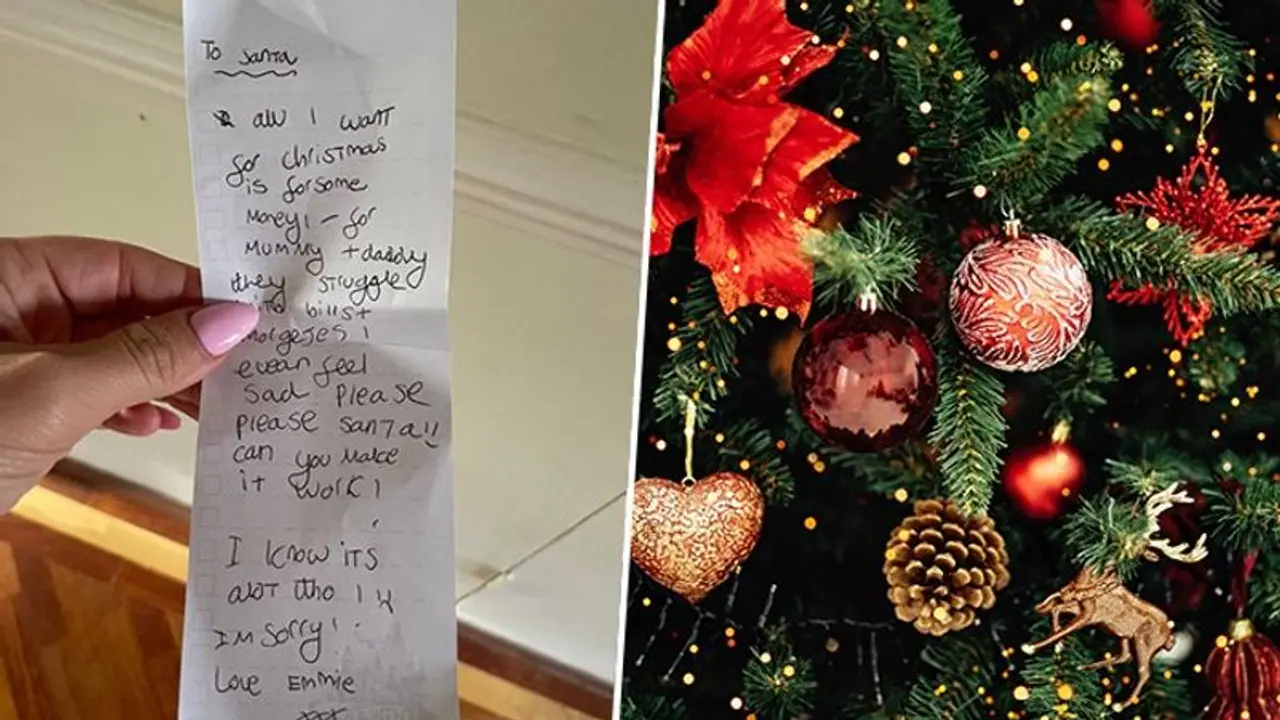 To Santa
all I want
for christmas
is for some
Money! - for
Mummy + daddy
they struggle
bills +
morgeses!
feel
Sad Please
please santa!!
can you Make
it work!
I know iTS
alot tho!
I'M Sorry!
Love Emmie
xxx